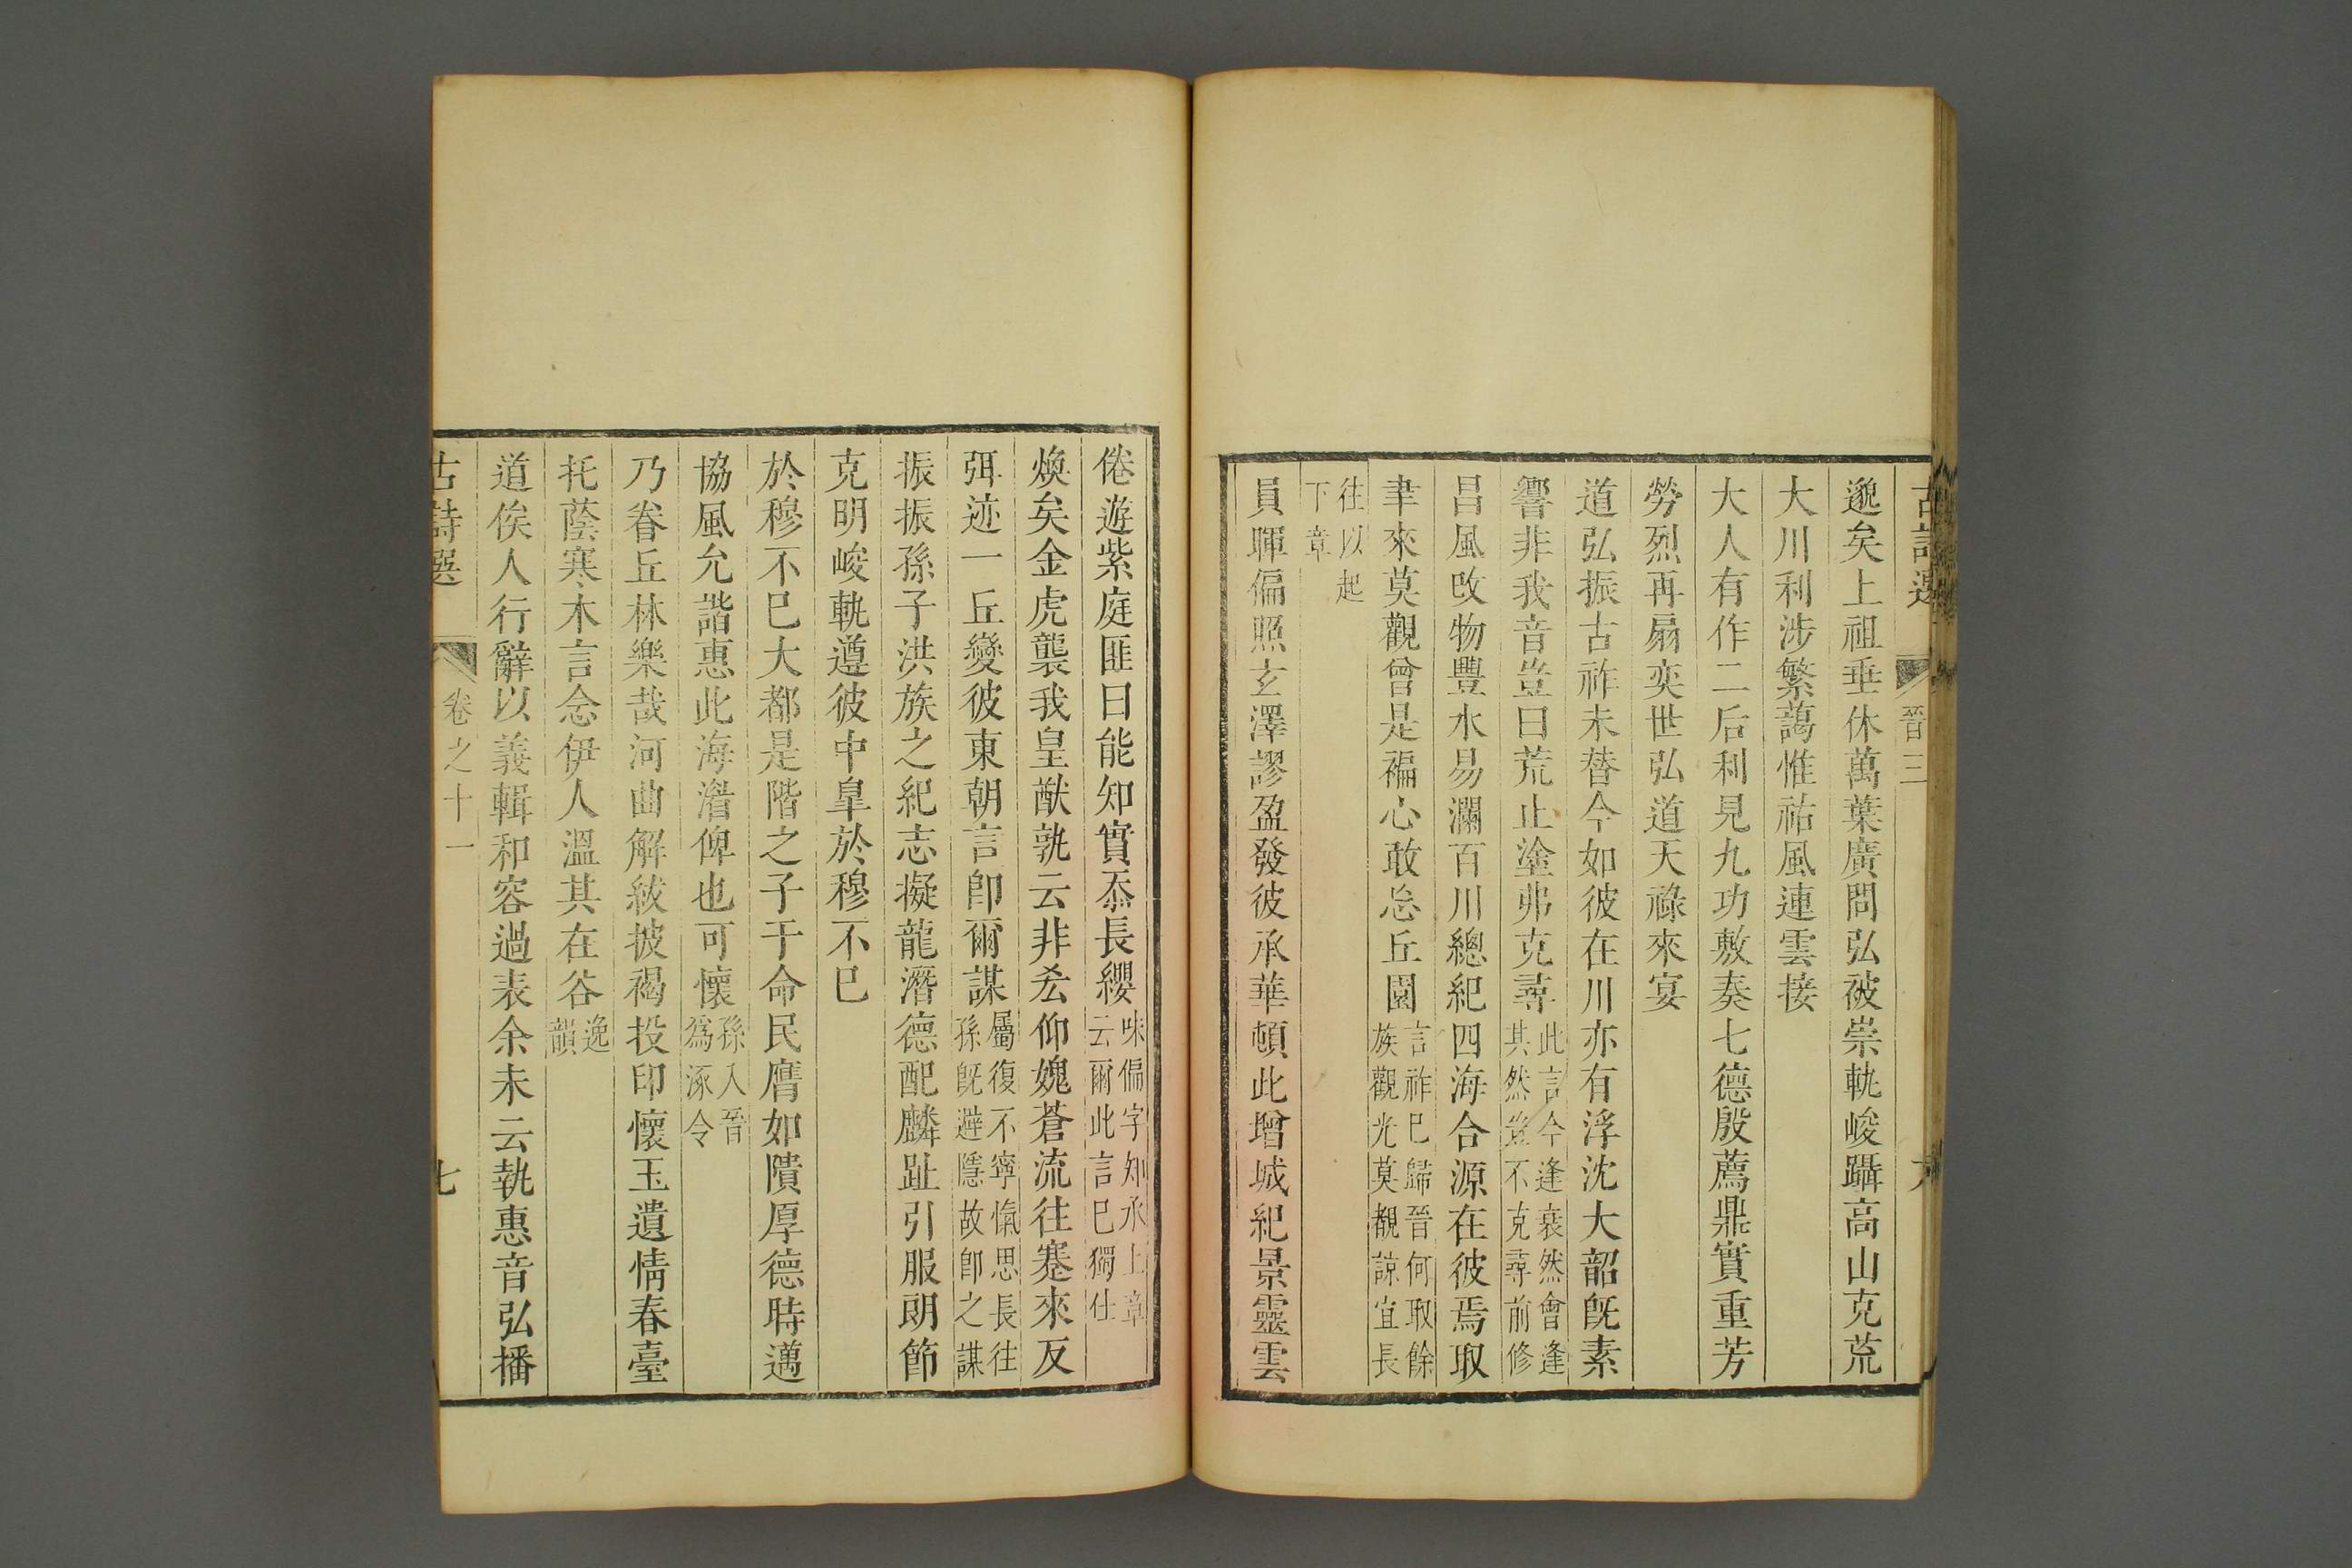 古詩選 晉三 六
邈矣上祖垂休萬葉廣問弘被崇軌峻躡高山克荒
大川利涉繁藹惟祜風連雲接
大人有作二后利見九功敷奏七德殷薦鼎實重芳
勞烈再扇奕世弘道天祿來宴
道弘振古祚未替今如彼在川亦有浮沈大韶旣素
響非我音豈曰荒止塗弗克尋
此言今逢衰然會逢
其然豈不克尋前修
昌風改物豐水易瀾百川總紀四海合源在彼焉取
聿來莫觀曾是褊心敢忘丘園
言祚已歸晉何取餘
族觀光莫覩諒宜長
往以起
下章
員暉偏照玄澤謬盈發彼承華頓此增城紀景靈雲
倦遊紫庭匪曰能知實忝長纓
味偏字知承上章
云爾此言已獨仕
煥矣金虎襲我皇猷孰云非尞仰媿蒼流往蹇來反
弭迹一丘變彼東朝言卽爾謀
屬復不寧愾思長往
孫旣避隱故卽之謀
振振孫子洪族之紀志擬龍潛德配麟趾引服朗節
克明峻軌遵彼中臯於穆不已
於穆不已大都是階之子于命民膺如隤厚德時邁
協風允諧惠此海湝俾也可懷
孫入晉
爲涿令
乃眷丘林樂哉河曲解紱披褐投印懷玉遺情春臺
托蔭寒木言念伊人溫其在谷
逸
韻
道俟人行辭以義輯和容過表余未云執惠音弘播
古詩選 卷之十一 七